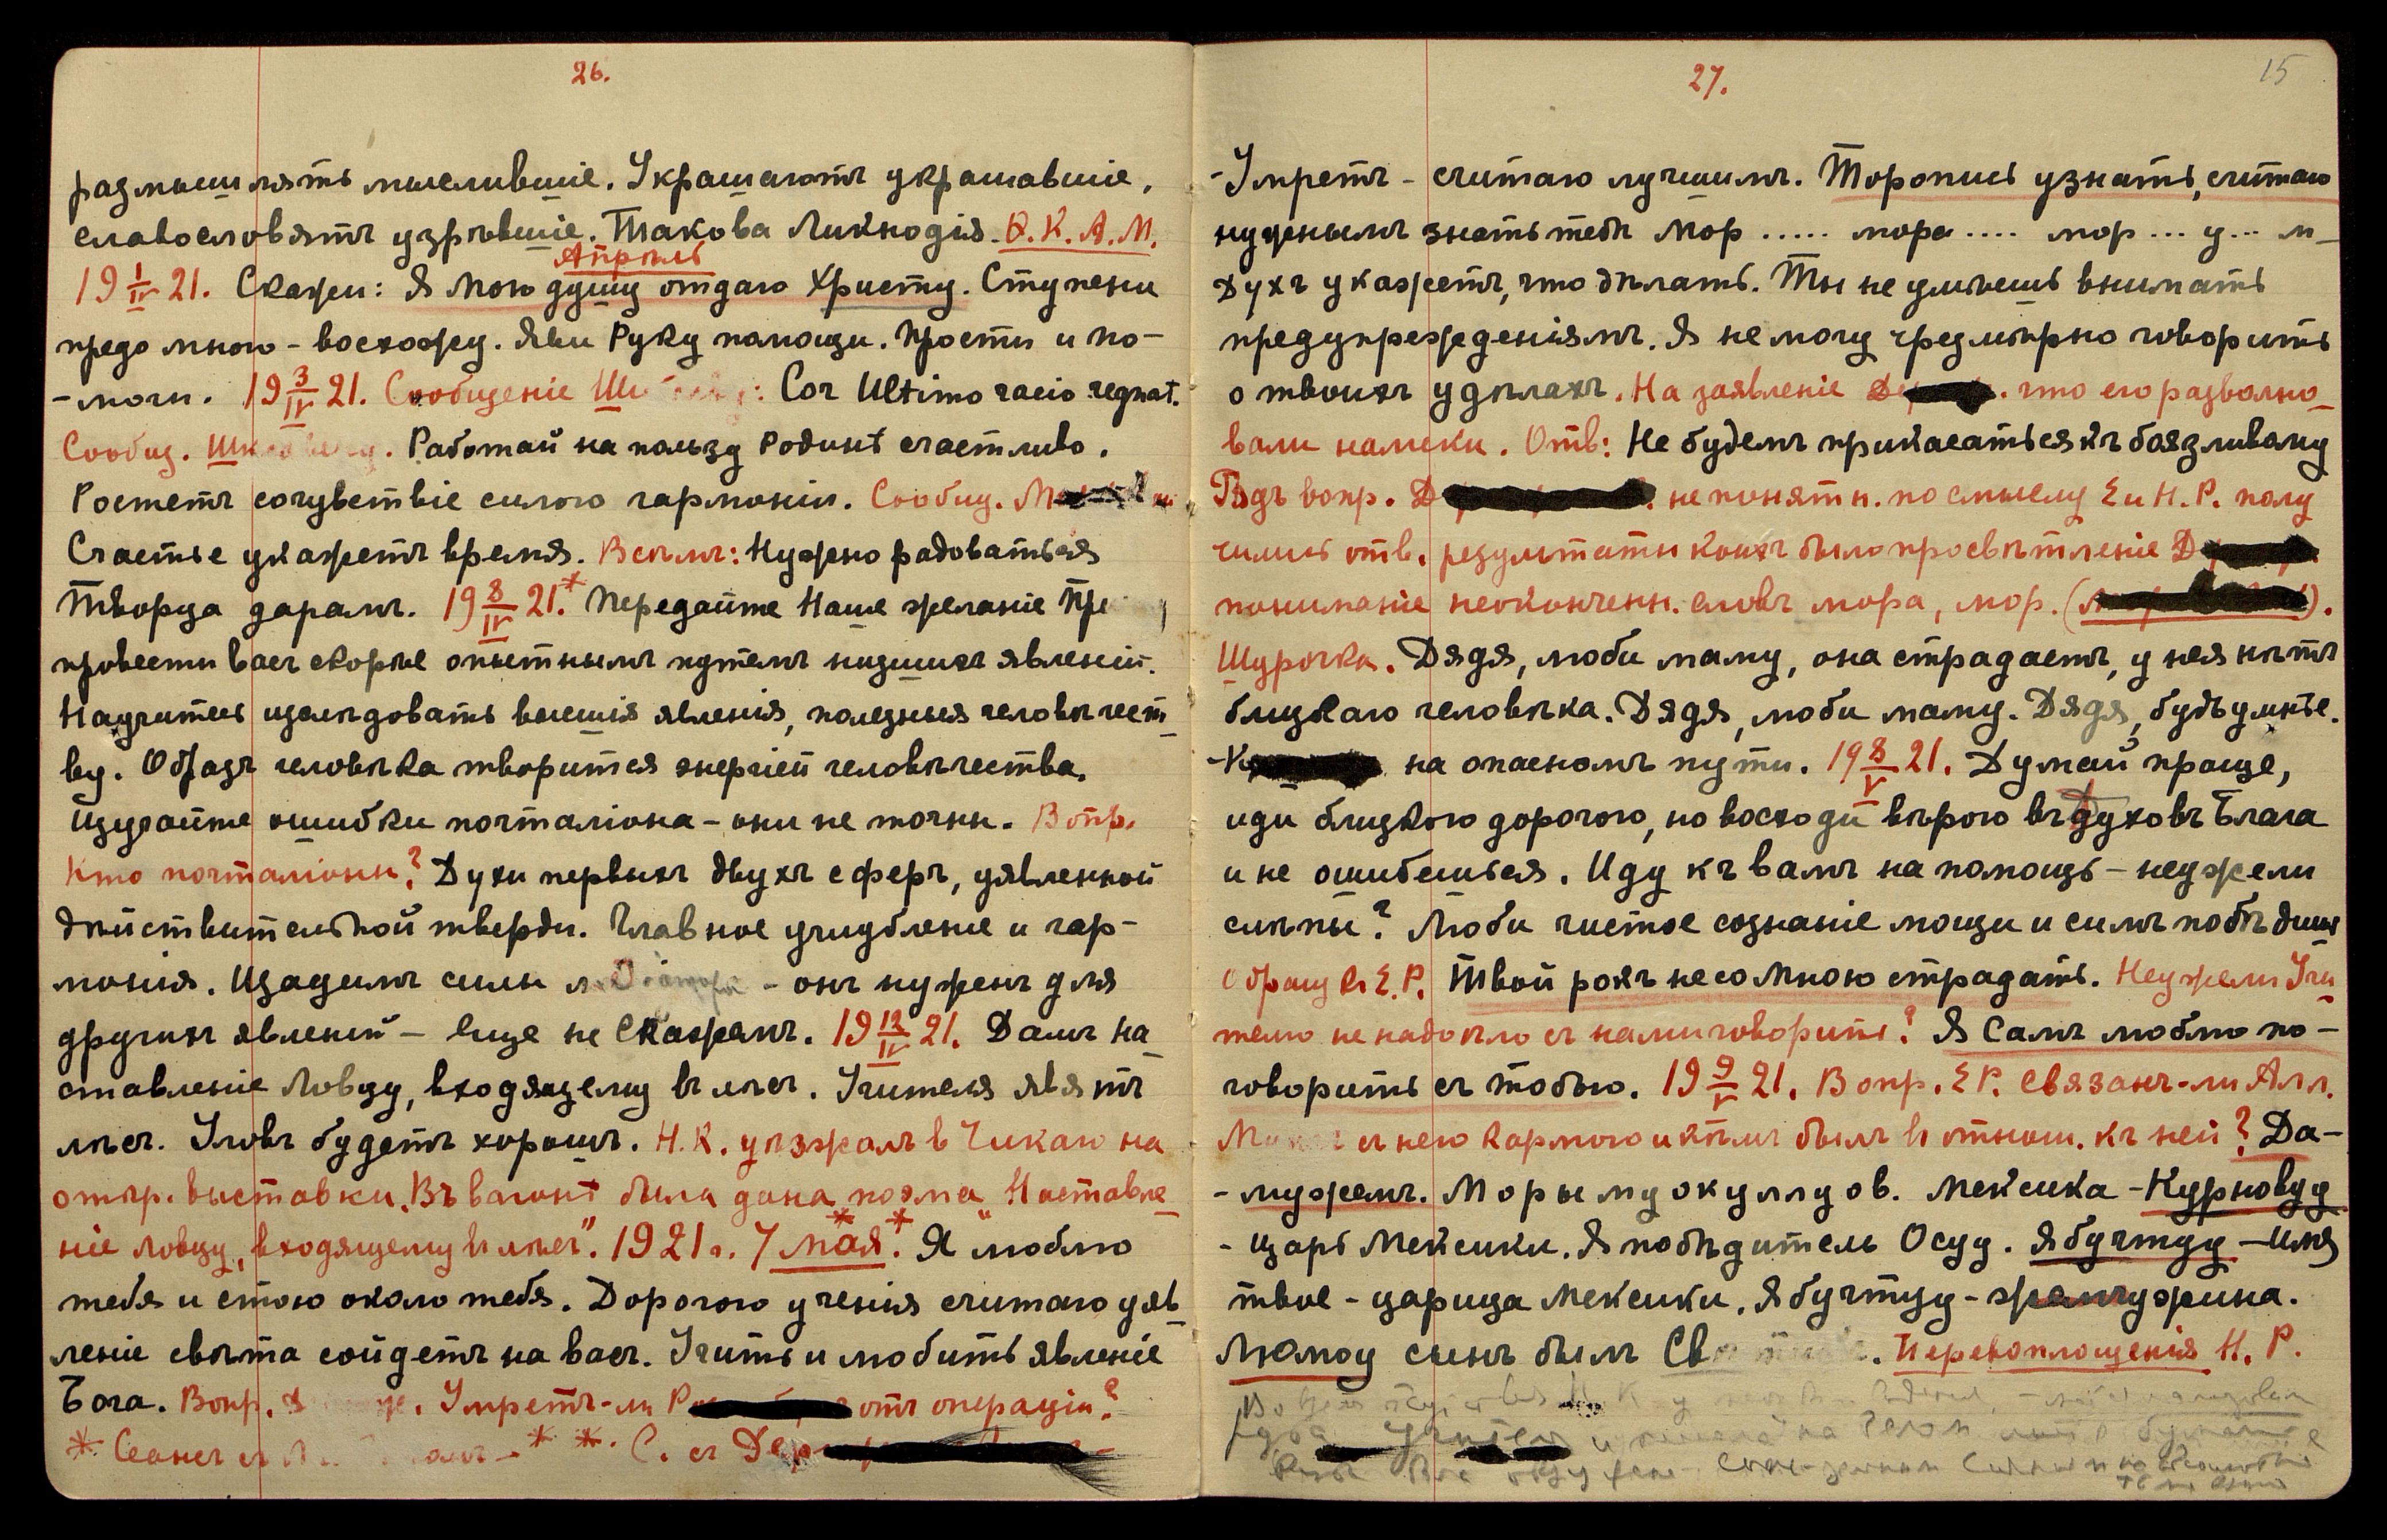 26.
размышлять мыслившіе. Украшаютъ украшавшіе,
славословятъ узрѣвшіе. Такова Ликподія. А.К.А.М.
Апрѣль
19 1/IV 21. Скажи: Я мою душу отдаю Христу. Ступени
предо мною - восхожу. Яви Руку помощи. Прости и по-
-моги. 19 3/IV 21. Сообщеніе: Cor Ultimo racio regnat.
Сообщ. Работай на пользу Родинѣ счастливо.
Ростетъ сочувствіе силою гармоніи. Сообщ.
Счастье укажетъ время. Всѣмъ: Нужно радоваться
Творца дарамъ. 19 8/IV 21.* Передайте Наше желаніе
провести васъ скорѣе опытнымъ путемъ низшихъ явленій.
Научитесь изслѣдовать высшія явленія, полезныя человѣчест_
ву. Образъ человѣка творится энергіей человѣчества.
Изучайте ошибки почталіона - они не точны. Вопр.
Кто почталіоны? Духи первыхъ двухъ сферъ, уявленной
дѣйствительной тверди. Главное углубленіе и гар-
монія. Щадимъ силы - онъ нуженъ для
другихъ явленій - еще не Скажемъ. 19 12/IV 21. Дамъ На_
ставленіе Ловцу, входящему въ лѣсъ. Учителя явятъ
лѣсъ. Уловъ будетъ хорошъ. Н.К. уѣзжалъ в Чикаго на
откр. выставки. Въ вагонѣ была дана поэма „Наставле_
ніе ловцу, входящему въ лѣсъ". 1921 г. 7 мая.** Я люблю
тебя и стою около тебя. Дорогою ученія считаю уяв_
леніе свѣта сойдетъ на васъ. Учить и любить явленіе
Бога. Вопр. Умретъ-ли отъ операціи?
* Сеансъ съ ** С. съ
27.
15
-Умретъ - считаю лучшимъ. Торопись узнать, считаю
нужнымъ знать тебѣ мор ..... мора .... мор ... у ... м_
Духъ укажетъ, что дѣлать. Ты не умѣешь внимать
предупрежденіямъ. Я не могу чрезмѣрно говорить
о твоихъ удѣлахъ. На заявленіе что его разволно_
вали намеки. Отв: Не будемъ прикасаться къ боязливому
вопр. не понятн. по смыслу Е и Н.Р. полу
чились отв. результаты коихъ было просвѣтленіе
пониманіе неокончен. словъ мора, мор.
Шурочка. Дядя, люби маму, она страдаетъ, у нея нѣтъ
близкаго человѣка. Дядя, люби маму. Дядя, будь умнѣе.
на опасномъ пути. 19 8/V 21. Думай проще,
иди близкою дорогою, но восходи вѣрою въ Духовъ Блага
и не ошибешься. Иду къ вамъ на помощь - неужели
слѣпы? Люби чистое сознаніе мощи и силъ побѣдишь
Обращ. къ Е.Р. Твой рокъ не со Мною страдать. Неужели Учи_
телю не надоѣло съ нами говорить? Я Самъ люблю по-
говорить съ тобою. 19 9/V 21. Вопр. Е.Р. Связанъ-ли Алл.
съ нею кармою и кѣмъ былъ въ отнош. къ ней? Да-
-мужемъ. Морымуокуллуов. Мексика - Курновуу
- царь Мексики. Я побѣдитель Осуу. Ябучтуу - имя
твое - царица Мексики. Ябучтуу - жемчужина.
Люмоу сынъ былъ Перевоплощенія Н.Р.